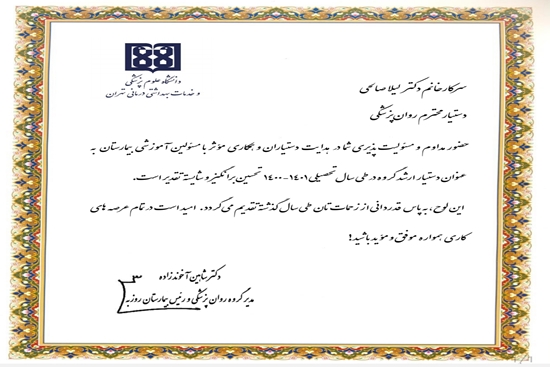 دانشگاه علوم پزشکی
و خدمات بهداشتی درمانی تهران
سرکار خانم دکتر لیلا صامی
دستیار محترم روان پزشکی
حضور مداوم و مسئولیت پذیری شما در هدایت دستیاران و همکاری مؤثر با مسئولین آموزشی بیمارستان به
عنوان دستیار ارشد گروه در طی سال تحصیلی ۱۴۰۱-۱۴۰۰ تحسین برانگیز و شایسته تقدیر است.
این لوح، به پاس قدردانی از زحمات تان طی سال گذشته تقدیم می گردد. امید است در تمام عرصه های
کاری همواره موفق و مؤید باشید!
دکتر شاهین آخوندزاده
مدیر گروه روان پزشکی و رئیس بیمارستان روزبه